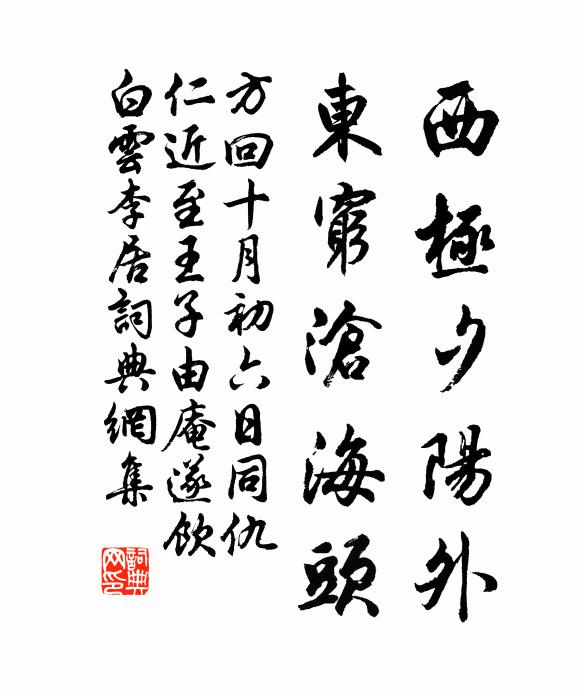 西極夕陽外
東窮滄海頭
方回十月初六日同仇
仁近至王子由庵遂飲
白雲李居詞典網集
詞典
网印